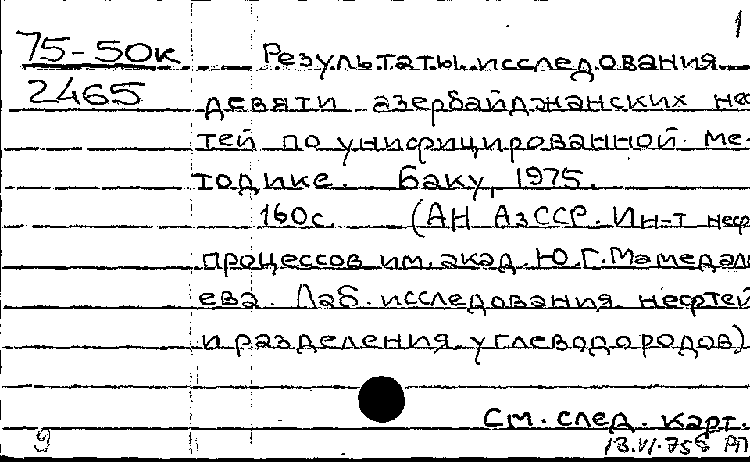 1
75-50к
2465
Результаты исследования
девяти азербайджанских неф
тей по унифицированной ме-
тодике. Баку, 1975.
160с. (АН АзССР. Ин-т неф
процессов им. акад. Ю.Г. Мамедали
ева. Лаб. исследования нефтей
и разделения углеводородов)
См. след. карт.
9